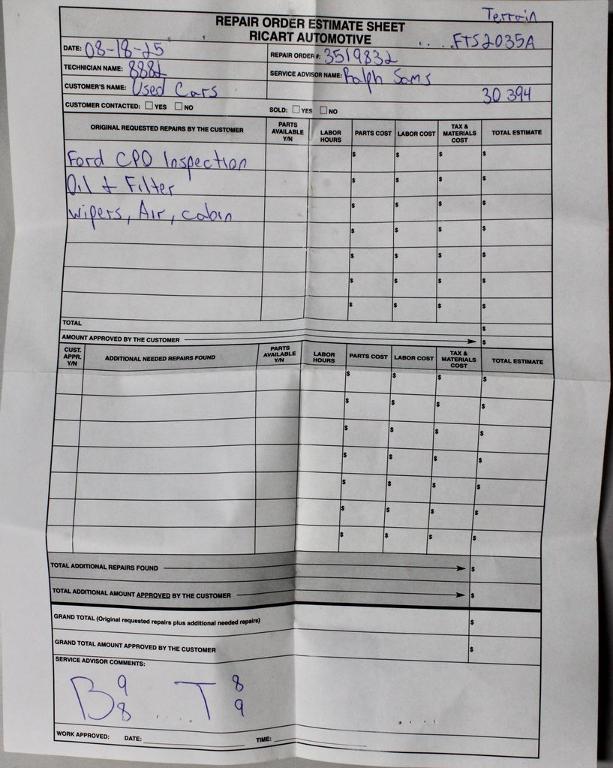 REPAIR ORDER ESTIMATE SHEET
RICART AUTOMOTIVE
Terrain
FTS2035A
DATE: 08-18-25
REPAIR ORDER #: 3519832
TECHNICIAN NAME: 8882
SERVICE ADVISOR NAME: Ralph Sams
CUSTOMER'S NAME: Used Cars
30394
CUSTOMER CONTACTED: ☐ YES ☐ NO SOLD: ☐ YES ☐ NO
ORIGINAL REQUESTED REPAIRS BY THE CUSTOMER PARTS AVAILABLE Y/N LABOR HOURS PARTS COST LABOR COST TAX & MATERIALS COST TOTAL ESTIMATE
Ford CPO Inspection $ $ $ $
Oil + Filter $ $ $ $
wipers, Air, cabin $ $ $ $
$ $ $ $
$ $ $ $
$ $ $ $
$ $ $ $
TOTAL $
AMOUNT APPROVED BY THE CUSTOMER $
CUST. APPR. Y/N ADDITIONAL NEEDED REPAIRS FOUND PARTS AVAILABLE Y/N LABOR HOURS PARTS COST LABOR COST TAX & MATERIALS COST TOTAL ESTIMATE
$ $ $ $
$ $ $ $
$ $ $ $
$ $ $ $
$ $ $ $
$ $ $ $
$ $ $ $
TOTAL ADDITIONAL REPAIRS FOUND $
TOTAL ADDITIONAL AMOUNT APPROVED BY THE CUSTOMER $
GRAND TOTAL (Original requested repairs plus additional needed repairs) $
GRAND TOTAL AMOUNT APPROVED BY THE CUSTOMER $
SERVICE ADVISOR COMMENTS:
B 9 8 T 8 9
WORK APPROVED: DATE: TIME: